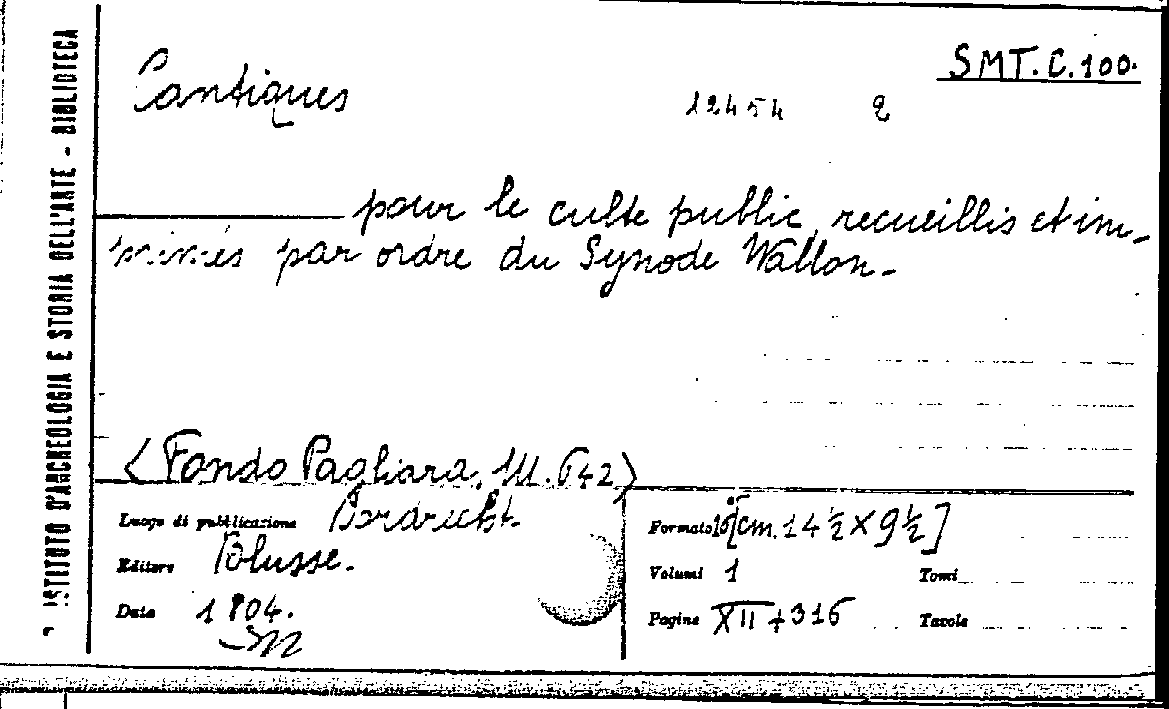 R. ISTITUTO D'ARCHEOLOGIA E STORIA DELL'ARTE - BIBLIOTECA
SMT. C. 100.
Cantiques
12454 2
pour le culte public, recueillis et im-
primés par ordre du Synode Wallon.-
(Fondo Pagliara, M. 642)
Luogo di pubblicazione Dordrecht.
Editore Blusse.
Data 1804.
Formato 16°[cm. 14 ½ X 9 ½]
Volumi 1 Tomi
Pagine XII + 316 Tavole